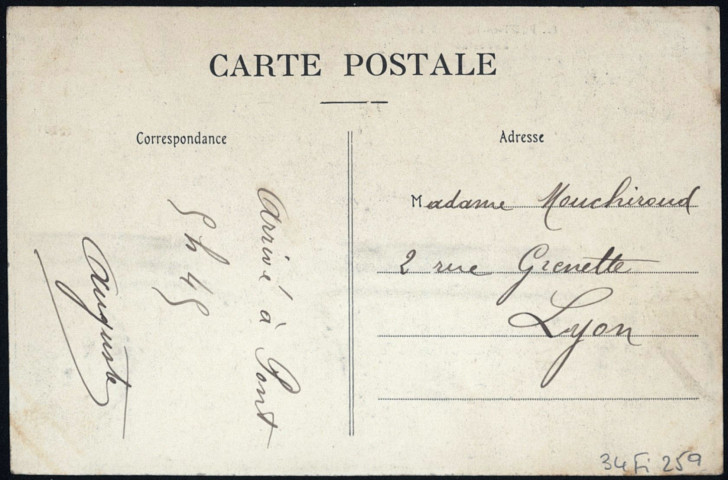 CARTE POSTALE
Correspondance
Arrivé à Pont
5h 45
Auguste
Adresse
Madame Mouchiroud
2 rue Grenette
Lyon
34Fi 259